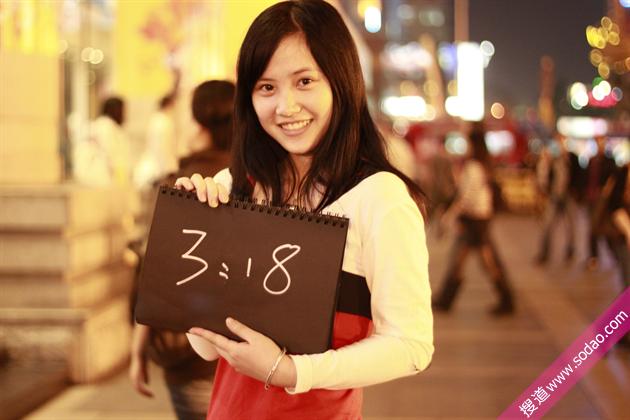 3:18
搜道 www.sodao.com